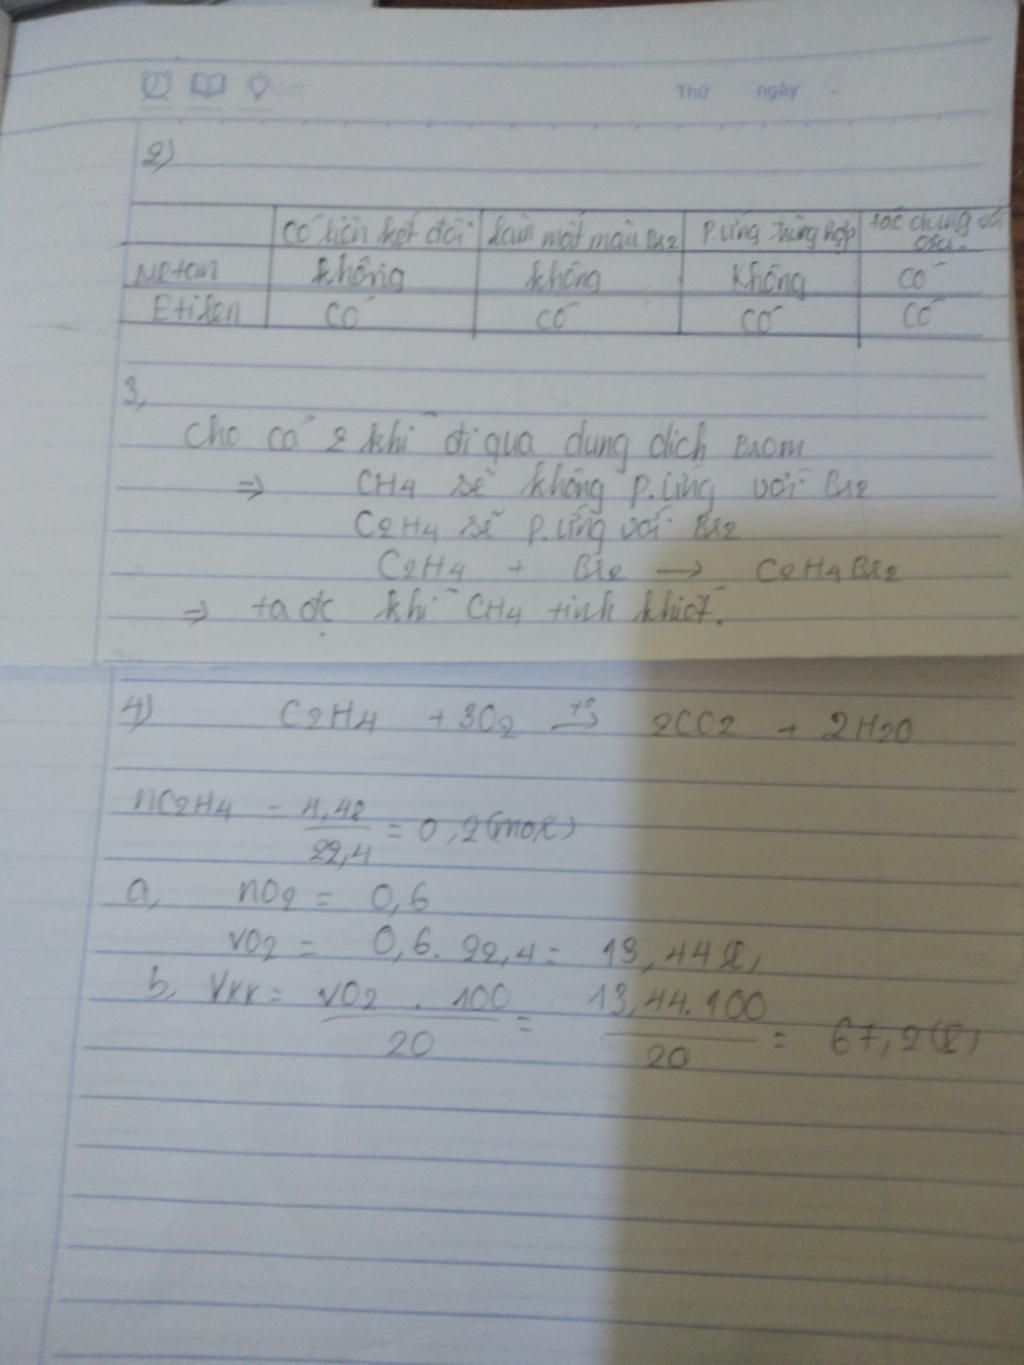 Thứ ngày
2)
Có liên kết đôi làm mất màu Br2 P.ứng trùng hợp tác dụng với oxi.
Metan không không Không có
Etilen có có có có
3,
Cho cá 2 khí đi qua dung dịch Brom
⇒ CH4 sẽ không p.ứng với Br2
C2H4 sẽ p.ứng với Br2
C2H4 + Br2 → C2H4Br2
⇒ ta đc khí CH4 tinh khiết.
4) C2H4 + 3O2 t° → 2CO2 + 2H2O
nC2H4 = 4,48 / 22,4 = 0,2 (mol)
a, nO2 = 0,6
VO2 = 0,6 . 22,4 = 13,44 l,
b, Vkk = VO2 . 100 / 20 = 13,44 . 100 / 20 = 67,2 (l)